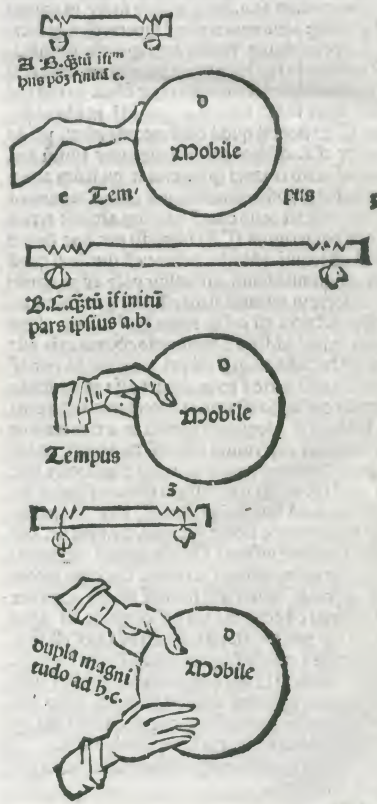 A B.q̃tũ ifiᵐ
hũs põʒ finitũ c.
D
Mobile
e Tem' pus
B.C.q̃tũ ifinitũ
pars ipſius a.b.
D
Mobile
Tempus
3
e
D
Mobile
dupla magni
tudo ad b.c.